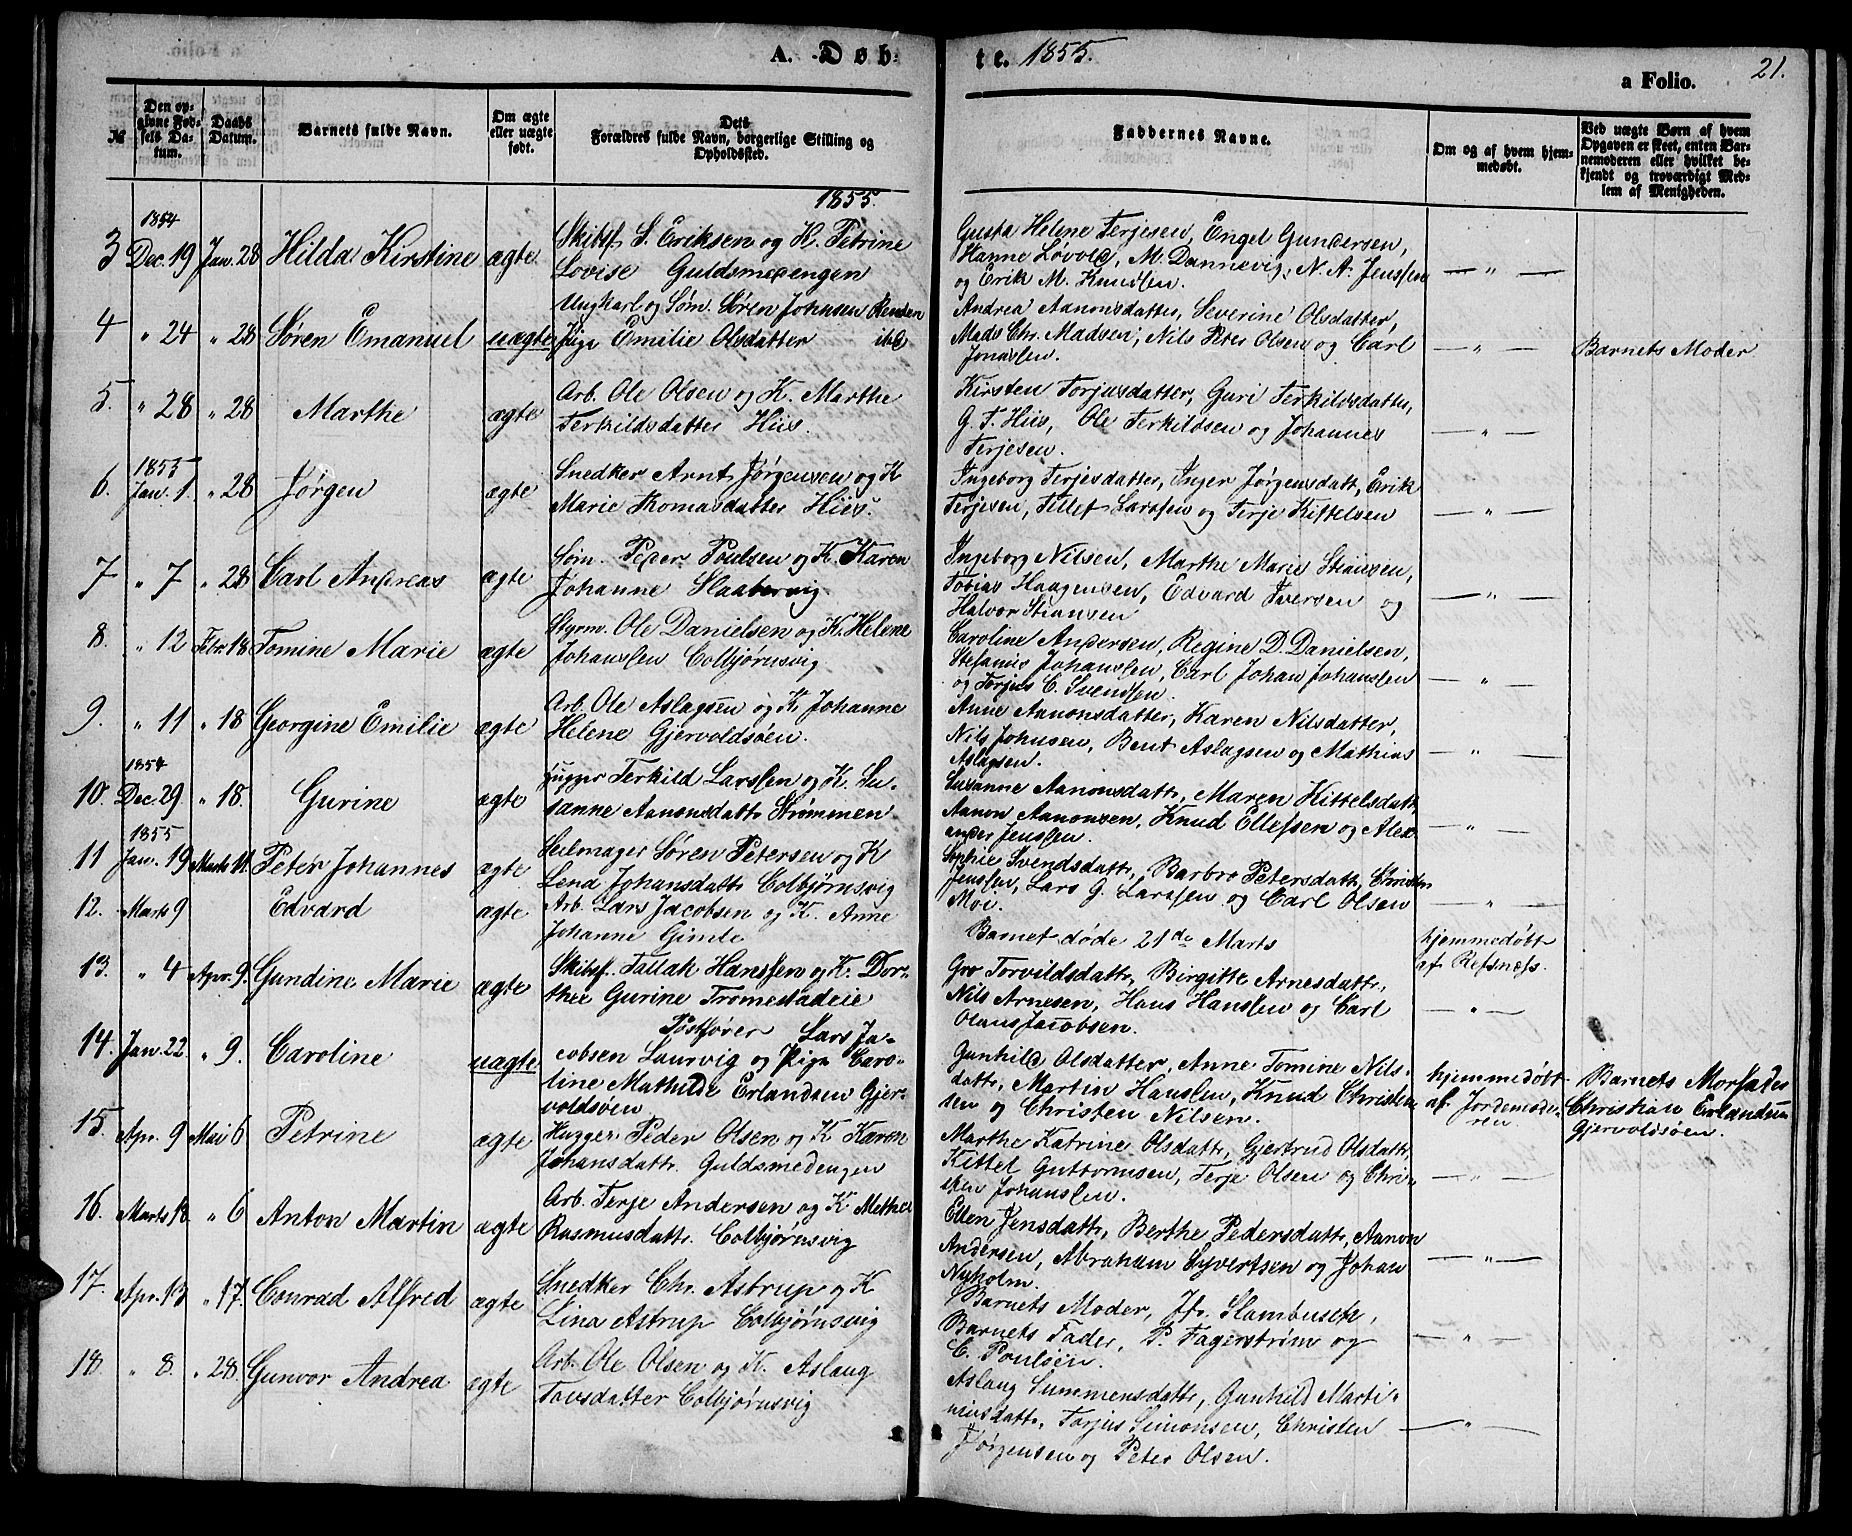 A. Døb-
te. 1855.
a Folio.
21.
№
Den op-
givne Fød-
sels Da-
tum.
Daabs
Datum.
Barnets fulde Navn.
Om ægte
eller uægte
født.
Dets
Forældres fulde Navn, borgerlige Stilling og
Opholdssted.
Faddernes Navne.
Om og af hvem hjem-
medøbt.
Ved uægte Børn af hvem
Opgaven er skeet, enten Bar-
nemoderen eller hvilket be-
kjendt og troværdigt Med-
lem af Menigheden.
1855.
1854
3 Dec. 19 Jan. 28 Hilda Kirstine ægte
Skibsf. S. Eriksen og K. Petrine
Lovise Guldsmedengen
Gusta Helene Terjesen, Engel Gundersen,
Hanne Løvold, M. Dannevig, N. A. Jenssen
og Erik M. Knudsen.
— " —
4 " 24 " 28 Søren Emanuel uægte
Ungkarl og Søm. Søren Johnsen Renden
Pige Emilie Olsdatter ibd
Andrea Aanonsdatter, Severine Olsdatter,
Mads Chr. Madsen, Nils Peter Olsen og Carl
Jonassen.
— " —
Barnets Moder
5. " 28 " 28 Marthe ægte
Arb. Ole Olsen og K. Marthe
Terkildsdatter Hiis.
Kirsten Torjusdatter, Guri Terkildsdatter,
G. T. Hiis, Ole Terkildsen og Johannes
Terjesen.
— " —
1855
6. Jan. 1. " 28 Jørgen ægte
Snedker Arnt Jørgensen og K
Marie Thomasdatter Hiis.
Ingeborg Terjesdatter, Inger Jørgensdatt, Erik
Terjesen, Tellef Larssen og Terje Kittelsen
— " —
7 " 7 " 28 Carl Andreas ægte
Søm. Peder Poulsen og K. Karen
Johanne Slaabervig
Ingeborg Nilsen, Marthe Marie Stiansen,
Tobias Haagensen, Edvard Iversen og
Halvor Stiansen
— " —
8. " 12 Febr. 18 Tomine Marie ægte
Styrm. Ole Danielsen og K. Helene
Johanssen Colbjørnsvig
Caroline Andersen, Regine D. Danielsen,
Stefanus Johanssen, Carl Johan Johanssen
og Torjus C. Svendsen.
— " —
9. " 11 " 18 Georgine Emilie ægte
Arb. Ole Aslagsen og K. Johanne
Helene Gjervoldsøen.
Anne Aanonsdatter, Karen Nilsdatter,
Nils Johnsen, Bent Aslagsen og Mathias
Aslagsen.
— " —
1854
10. Dec. 29 " 18. Gurine ægte
Hugger Terkild Larssen og K. Su-
sanne Aanonsdatt. Strømmen
Susanne Aanonsdatt., Maren Kittelsdatt,
Aanon Aanonsen, Knud Ellefsen og Alex-
ander Jenssen.
— " —
1855
11 Jan. 19 Marts 11. Peter Johannes ægte
Seilmager Søren Petersen og K
Lena Johansdatt. Colbjørnsvig
Sophie Svendsdatt., Barbro Petersdatt, Christen
Jenssen, Lars G. Larssen og Carl Olsen
Moi.
— " —
12. Marts 9 Edvard ægte
Arb. Lars Jacobsen og K. Anne
Johanne Gimle
Barnet døde 21de Marts
hjemmedøbt
af Refsnæs.
13. " 4 Apr. 9. Gundine Marie ægte
Skibsf. Tallak Hanssen og K. Dor-
thee Gurine Tromestadeie
Gro Torvildsdatt., Birgitte Arnesdatt.,
Nils Arnesen, Hans Hanssen og Carl
Olaus Jacobsen.
— " —
14. Jan. 22. " 9. Caroline uægte
Postfører Lars Ja-
cobsen Laurvig og Pige Caro-
line Mathilde Erlandsen Gjer-
voldsøen
Gunhild Olsdatter, Anne Tomine Nils-
datt., Martin Hanssen, Knud Christen
sen og Christen Nilsen.
hjemmedøbt
af Jordemode-
ren.
Barnets Morfader
Christian Erlandsen
Gjervoldsøen.
15. Apr. 9 Mai 6 Petrine ægte
Hugger Peder Olsen og K. Karen
Johansdatt. Guldsmedengen
Marthe Katrine Olsdatt., Gjertrud Olsdatt.
Kittel Guttormsen, Terje Olsen og Chri-
sten Johanssen.
— " —
16. Marts 13 " 6 Anton Martin ægte
Arb. Terje Andersen og K. Methea
Rasmusdatt. Colbjørnsvig
Ellen Jensdatt., Berthe Pedersdatt., Aanon
Andersen, Abraham Syvertsen og Johan
Nyholm.
— " —
17. Apr. 13 " 17. Conrad Alfred ægte
Snedker Chr. Astrup og K
Lina Astrup Colbjørnsvig
Barnets Moder, Jfr. Stambusch,
Barnets Fader, P. Fagerstrøm og
C. Poulsen.
— " —
18. " 8. " 28. Gunvor Andrea ægte
Arb. Ole Olsen og K. Aslaug
Tovsdatter Colbjørnsvig
Aslaug Summensdatt., Gunhild Marti-
niusdatt., Torjus Simonsen, Christen
Jørgensen og Peter Olsen.
— " —